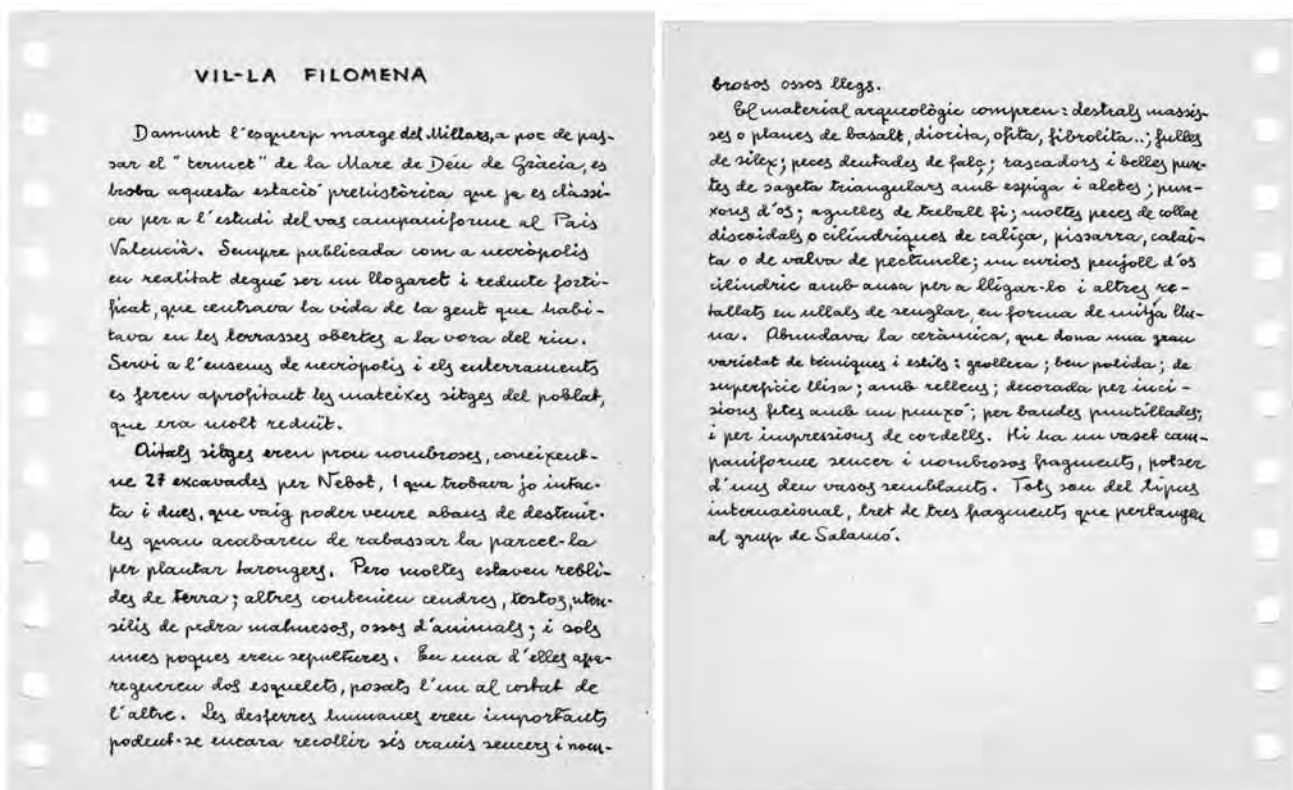 VIL-LA FILOMENA
Damunt l'esquerp marge del Millars, a poc de pas-
sar el "termet" de la Mare de Déu de Gràcia, es
troba aquesta estació prehistòrica que ja es clàssi-
ca per a l'estudi del vas campaniforme al Pais
Valencià. Sempre publicada com a necròpolis
en realitat degué ser un llogaret i reducte forti-
ficat, que centrava la vida de la gent que habi-
tava en les terrasses obertes a la vora del riu.
Servi a l'ensems de necròpolis i els enterraments
es feren aprofitant les mateixes sitges del poblat,
que era molt reduït.
Aitals sitges eren prou nombroses, coneixent-
ne 27 excavades per Nebot, 1 que trobava jo intac-
ta i dues, que vaig poder veure abans de destruir-
les quan acabaren de rabassar la parcel-la
per plantar tarongers. Pero moltes estaven rebli-
des de terra; altres contenien cendres, testos, uten-
silis de pedra malmesos, ossos d'animals; i sols
unes poques eren sepultures. En una d'elles apa-
regueren dos esquelets, posats l'un al costat de
l'altre. Les desferres humanes eren importants
podent-se encara recollir sis cranis sencers i nom-
brosos ossos llegs.
El material arqueològic compren: destrals massis-
ses o planes de basalt, diorita, ofita, fibrolita..; fulles
de silex; peces dentades de falç; rascadors i belles pun-
tes de sageta triangulars amb espiga i aletes; pun-
xons d'os; agulles de treball fi; moltes peces de collar
discoidals o cilíndriques de caliça, pissarra, calai-
ta o de valva de pectuncle; un curios penjoll d'os
cilindric amb ansa per a lligar-lo i altres re-
tallats en ullals de senglar, en forma de mitja llu-
na. Abundava la ceràmica, que dona una gran
varietat de tècniques i estils: grollera; ben polida; de
superfície llisa; amb relleus; decorada per inci-
sions fetes amb un punxó; per bandes puntillades;
i per impressions de cordells. Hi ha un vaset cam-
paniforme sencer i nombrosos fragments, potser
d'uns deu vasos semblants. Tots son del tipus
internacional, tret de tres fragments que pertanyen
al grup de Salamó.